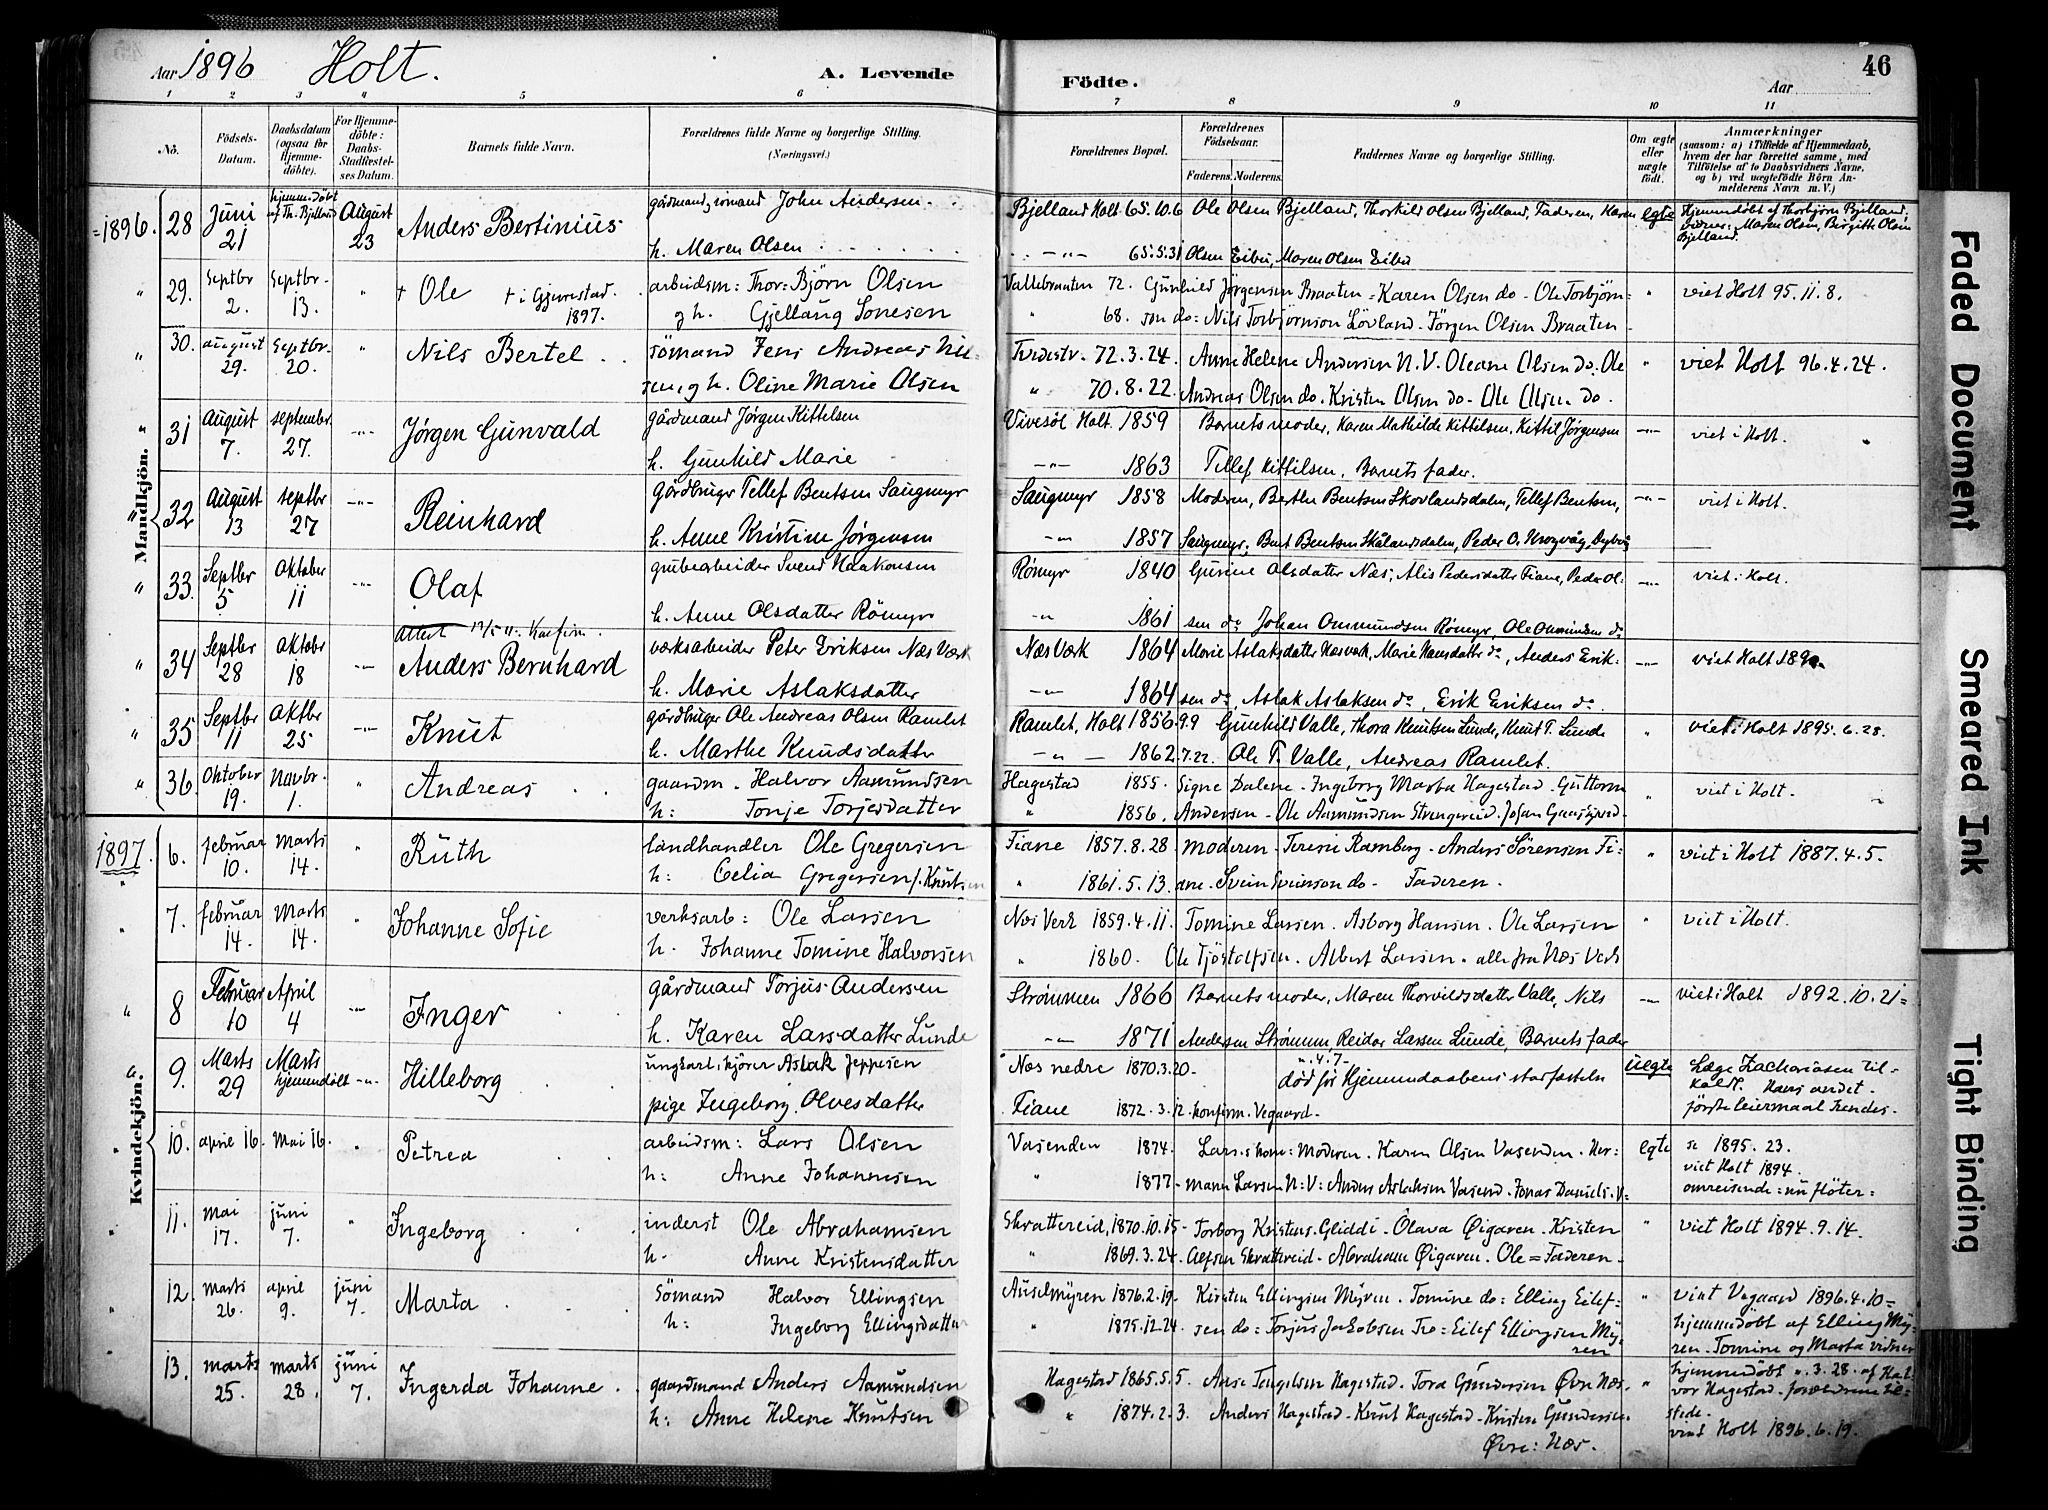 Aar 1896 Holt. A. Levende Födte. Aar 46
1 2 3 4 5 6 7 8 9 10 11
No.
Födsels-Datum.
Daabsdatum (ogsaa for Hjemmedöbte).
For Hjemmedöbte: Daabs-Stadfæstelses Datum.
Barnets fulde Navn.
Forældrenes fulde Navne og borgerlige Stilling.
(Næringsvei.)
Forældrenes Bopæl.
Forældrenes Födselsaar.
Faderens. Moderens.
Faddernes Navne og borgerlige Stilling.
Om ægte eller uægte födt.
Anmærkninger
(saasom: a) i Tilfælde af Hjemmedaab, hvem der har forrettet samme, med Tilföielse af to Daabsvidners Navne, og b) ved uægtefödte Börn Anmelderens Navn m. V.)
Mandkjön.
=1896. 28 Juni 21 hjemmedöbt af Th. Bjelland August 23 Anders Bertinius gårdmand, sömand John Andersen Bjelland Holt 65.10.6 Ole Olsen Bjelland, Thorkild Olsen Bjelland, Faderen, Maren egte Hjemmedöbt af Thorbjörn Bjelland,
h. Maren Olsen 65.5.31 Olsen Eibu, Maren Olsen Eibu vidner: Maren Olsen, Birgitte Olsen Bjelland.
29. Septbr 2. Septbr. 13. " + Ole + i Gjerrestad 1897. arbeidsm: Thor=Björn Olsen Vallebraaten 72. Gunhild Jörgensen Braaten = Karen Olsen do - Ole Torbjörn= " viet Holt 95.11.8.
g h. Gjellaug Tonesen " 68. sen do = Nils Torbjörnson Lövland - Jörgen Olsen Braaten
30. august 29. Septbr. 20. " Nils Bertel sömand Jens Andreas Niel= 72.3.24. Anne Helene Andersen N. V. Oleane Olsen do. Ole " viet Holt 96.4.24.
sen, g h. Oline Marie Olsen " 70.8.22. Andreas Olsen do. Kristen Olsen do - Ole Olsen do.
31 August 7. september 27. -"- Jörgen Gunvald gårdmand Jörgen Kittelsen Vivesöl Holt. 1859 Barnets moder, Karen Mathilde Kittilsen, Kittil Jörgensen -"- viet i Holt.
h. Gunhild Marie -"- 1863 Tellef Kittilsen, Barnets fader.
32 August 13 septbr 27 -"- Reinhard gårdbruger Tellef Bentsen Saugmyr Saugmyr 1858 Moderen, Berthe Bentsen Skovlandsdalen, Tellef Bentsen, -"- viet i Holt.
h. Anne Kristine Jörgensen -"- 1857 Saugmyr, Bent Bentsen Skålandsdalen, Peder O.
33. Septbr 5 Oktober 11 -"- Olaf grubearbeider Svend Haakonsen Römyr 1840 Gurine Olsdatter Næs, Alis Pedersdatter Fiane, Peder Ol- -"- viet i Holt.
h. Anne Olsdatter Römyr -"- 1861 sen do Johan Ommundsen Römyr, Ole Ommundsen do
34 Septbr 28 Oktobr 18 -"- Anders Bernhard værksarbeider Peter Eriksen Næs Værk Næs Værk 1864 Marie Aslaksdatter Næsværk, Marie Hansdatter do, Anders Erik- -"- viet Holt
h. Marie Aslaksdatter -"- 1864 sen do, Aslak Aslaksen do, Erik Eriksen do.
35 Septbr 11 Oktbr 25 -"- Knut gårdbruger Ole Andreas Olsen Ramlet Ramlet, Holt 1856.9.9 Gunhild Valle, Thora Knutsen Lunde, Knut T. Lunde " viet i Holt 1895.6.28.
h. Marthe Knudsdatter -"- 1862.7.22. Ole T. Valle, Andreas Ramlet.
36. Oktober 19. Novbr. 1. " Andreas gaardm. Halvor Aamundsen Hagestad 1855. Signe Dalene - Ingeborg Marta Hagestad - Guttorm " viet i Holt.
h: Tonje Torjesdatter " 1856. Andersen - Ole Aamundsen Strengereid -
Kvindekjön.
1897. 6. februar 10. Marts 14. " Ruth landhandler Ole Gregersen Fiane 1857.8.28 Moderen - Teresie Ramberg - Anders Sörensen Fi= " viet i Holt 1887.4.5.
h: Celia Gregersen f. Knutsen " 1861.5.13. ane - Svein Sveinson do - Faderen.
7. februar 14. Marts 14. " Johanne Sofie verksarb: Ole Larsen Næs Verk 1859.4.11. Tomine Larsen. Asborg Hansen. Ole Larsen " viet i Holt.
h. Johanne Tomine Halvorsen " 1860. Ole Tjöstolfsen. Albert Larsen - alle fra Næs Verk
8 Februar 10 April 4 -"- Inger gårdmand Torjus Andersen Strömmen 1866 Barnets moder, Maren Thorvildsdatter Valle, Nils -"- viet i Holt 1892.10.21=
h. Karen Larsdatter Lunde -"- 1871 Andersen Strömmen, Reidar Larsen Lunde, Barnets fader
9. Marts 29 Marts hjemmedöbt -"- Hilleborg ungkarl, kjörer Aslak Jeppesen Næs nedre 1870.3.20- ".4.7- död för Hjemmedaabens stadfæstelse uegte Læge Zachariasen til-
pige Ingeborg Olvesdatter Fiane 1872.3.12. konfirm. Vegaard - kaldt. Hans andet -
første leiermaal hendes -
10. april 16. Mai 16. " Petrea arbeidsm: Lars Olsen Vasenden 1874. Lars's kone = Moderen. Karen Olsen Vasenden. Her= egte se 1895. 23.
h: Anne Johannesen " 1877 - mann Larsen N: V: Anders Aslaksen Vasend. Jonas Daniels. V= viet Holt 1894.
omreisende: nu flöter=
11. mai 17. juni 7. " Ingeborg inderst Ole Abrahamsen Skrattereid, 1870.10.15- Torborg Kristens. Gliddi. Olava Øigaren. Kristen " viet Holt 1894.9.14.
h. Anne Kristensdatter " 1869.3.24. Alfsen Skrattereid - Abraham Øigaren. Ole = Faderen -
12. marts 26. april 9. juni 7. Marta Sömand Halvor Ellingsen Auselmyren 1876.2.19. Kirsten Ellingsen Myren. Tomine do: Elling Eilef= " viet Vegaard 1896.4.10=
h: Ingeborg Ellingsdatter " 1875.12.24. sen do= Torjus Jakobsen Tro= Eilef Ellingsen My= hjemmedöbt af Elling My=
ren ren. Tomine og Marta vidner
13. marts 25. marts 28. juni 7. Ingerda Johanne gaardmand Anders Aamundsen Hagestad 1865.5.5. Anne Tengelsen Hagestad. Tora Gundersen Øvre Næs. " hjemmedöbt ".3.28. af Hal=
h: Anne Helene Knutsen " 1874.2.3. Anders Hagestad - Knut Hagestad - Kristen Gundersen. vor Hagestad - forældrene til=
Øvre: Næs. stede -
viet Holt 1896.6.19.
Faded Document
Smeared Ink
Tight Binding